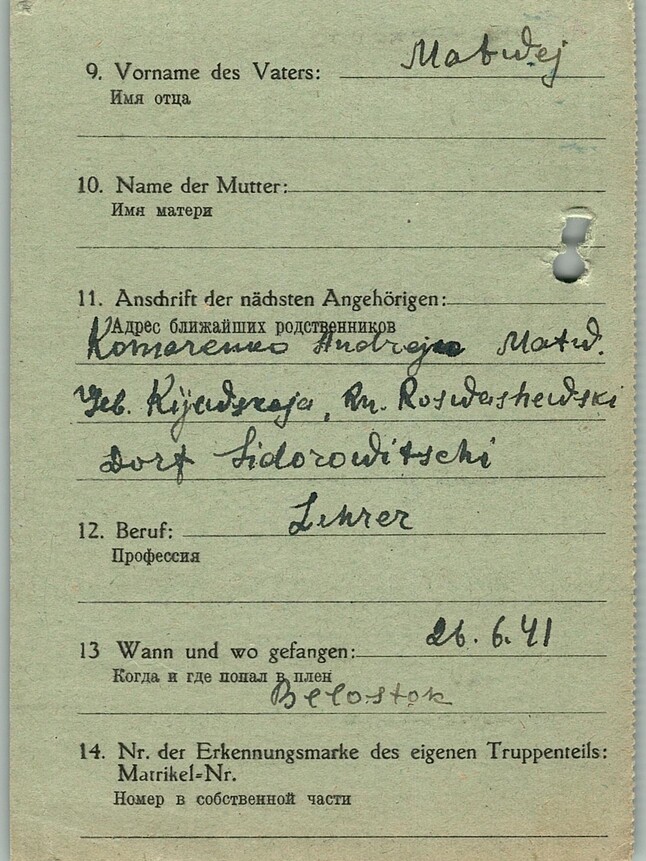 9. Vorname des Vaters: Matwej
Имя отца
10. Name der Mutter:
Имя матери
11. Anschrift der nächsten Angehörigen:
Адрес ближайших родственников
Komarenko Andrej Matw.
Geb. Kijewskaja, Rn. Roswashewski
Dorf Sidorowitschi
12. Beruf: Lehrer
Профессия
13 Wann und wo gefangen: 26.6.41
Когда и где попал в плен
Belostok
14. Nr. der Erkennungsmarke des eigenen Truppenteils:
Matrikel-Nr.
Номер в собственной части